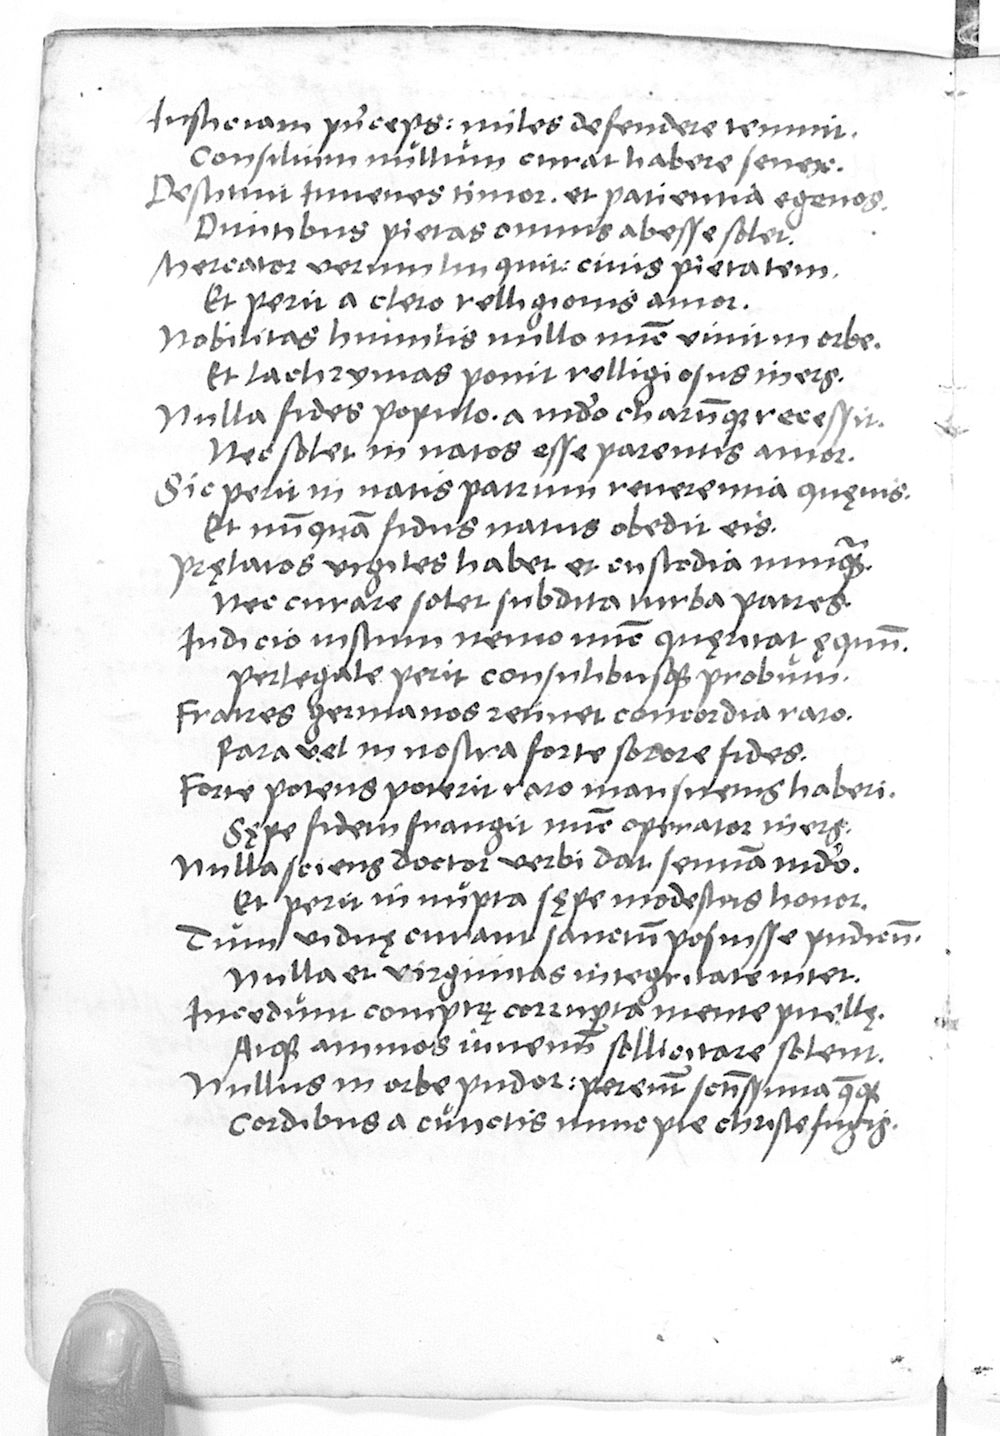 Iusticiam pri̅ceps: miles defendere temnit.
Consilium nullum curat habere senex.
Destituit Iuuenes timor. et patientia egenos.
Diuitibus pietas omnis abesse solet.
Mercator verum linquit: ciuis pietatem.
Et perit a clero relligionis amor.
Nobilitas humilis nullo nu̅c viuit in orbe.
Et lachrymas ponit relligiosus iners.
Nulla fides populo. a mu̅do charu̅q̨ recessit.
Nec solet in natos esse parentis amor.
Sic perit in natis patrum reuerentia quęuis.
Et nu̅qua̅ fidus natus obedit eis.
Pręlatos vigiles habet et custodia nunq̅.
Nec curare solet subdita turba patres.
Iudicio iustum nemo nu̅c quęritat ęquu̅.
Perlegale perit consulibusq̨ probum.
Fratres germanos retinet concordia raro.
Rara vel in nostra forte sorore fides.
Forte potens poterit raro mansuetus haberi.
Sępe fidem frangit nu̅c operator iners.
Nulla sciens doctor verbi dat semina̅ mu̅do.
Et perit in nupta sępe modestus honor.
Tum viduę curant sanctu̅ posuisse pudicu̅.
Nulla et virginitas integritate nitet.
Incedunt comptę corrupta mente puellę.
Atq̨ animos iuuenu̅ sollicitare solent.
Nullus in orbe pudor: pereunt sct̅issima q̅q̨
Cordibus a cunctis nunc pie christe fugis.